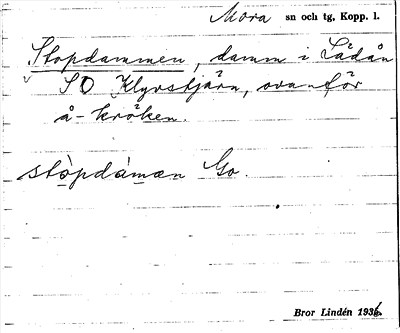 Mora sn och tg, Kopp. l.
Stopdammen, damm i Lådån
SO Klyvstjärn, ovanför
å-kröken.
stòpdàmæn Go.
Bror Lindén 1936.